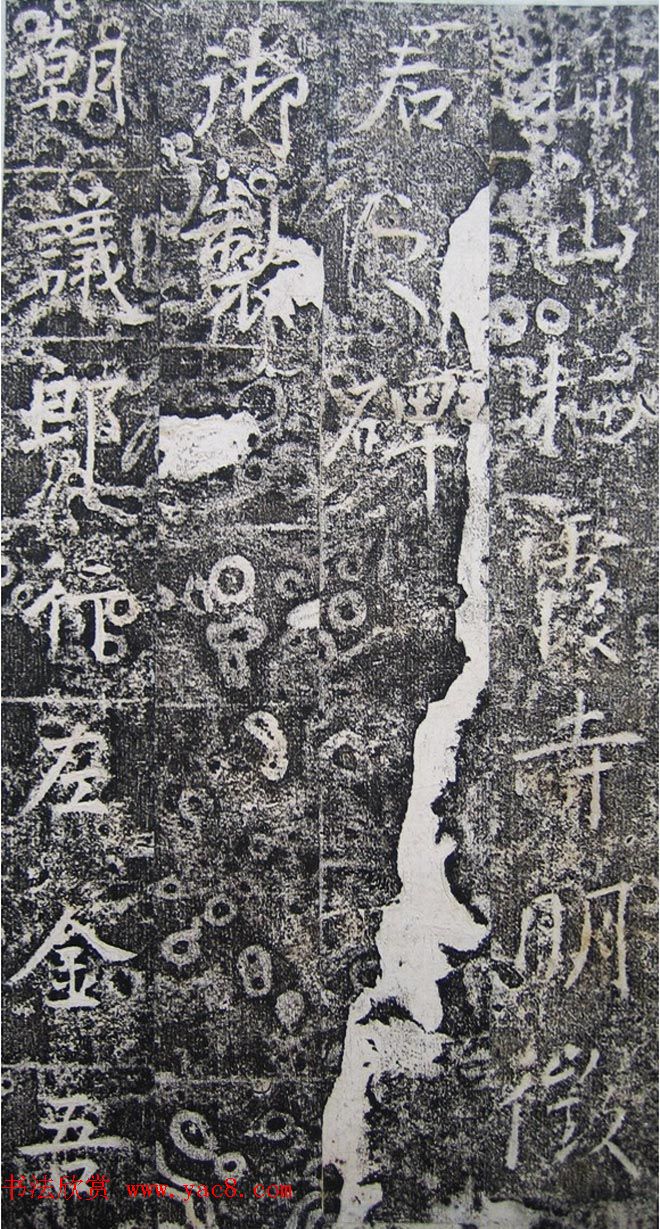 山 霞寺明徵
君之碑
御製
朝議郎行左金吾
书法欣赏 www.yac8.com